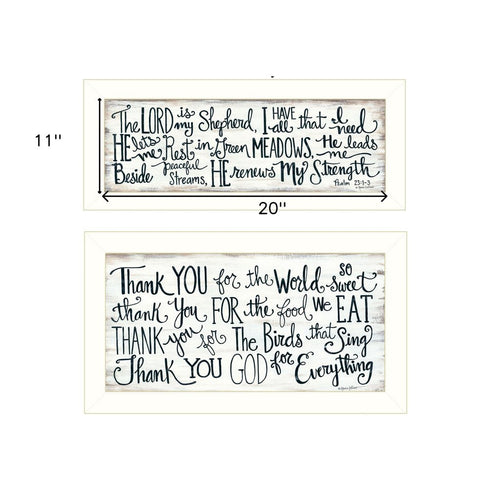 11"
The LORD is my Shepherd, I HAVE all that I need
HE lets me Rest in Green MEADOWS, He leads me
Beside Peaceful Streams, HE renews My Strength
Psalm 23:1-3
20"
Thank YOU for the World so sweet
thank You FOR the food We EAT
THANK you for The Birds that Sing
Thank YOU GOD for Everything